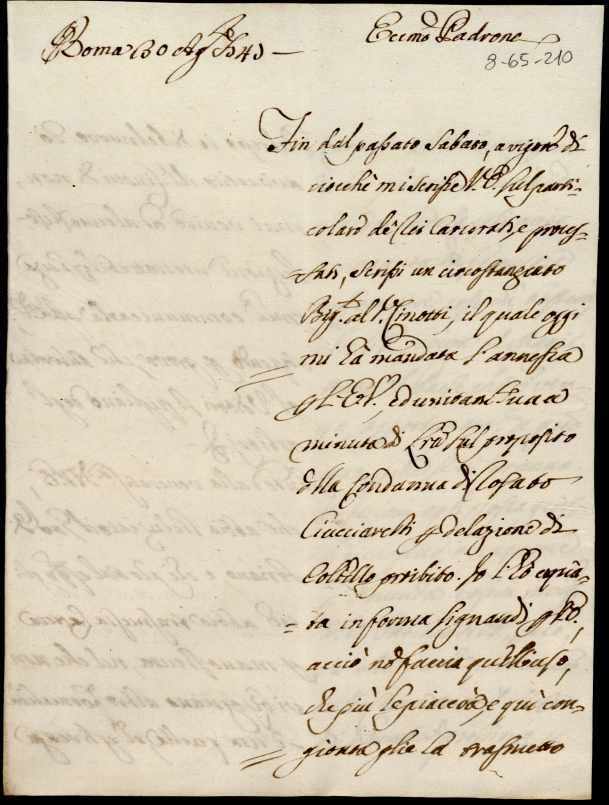 Roma 30 Ag.
Eccmo Padrone
8-65-210
Fin dal passato Sabato, a vigore di
ciocchè mi scrisse V.E. sul parti-
colare de Rei Carcerati, e proces-
sati, scrissi un circostanziato
Big.to al S.r Cinotti, il quale oggi
mi ha mandata l'annessa
p L'E.V., ed unitam.te una
minuta di Lra sul proposito
della Condanna di Rosato
Ciucciarelli p delazione di
Coltello proibito. Io l'ho copia-
ta in forma signandi p V.E.,
acciò ne faccia quell'uso,
che più le piacerà, e quì con-
gionta glie la trasmetto